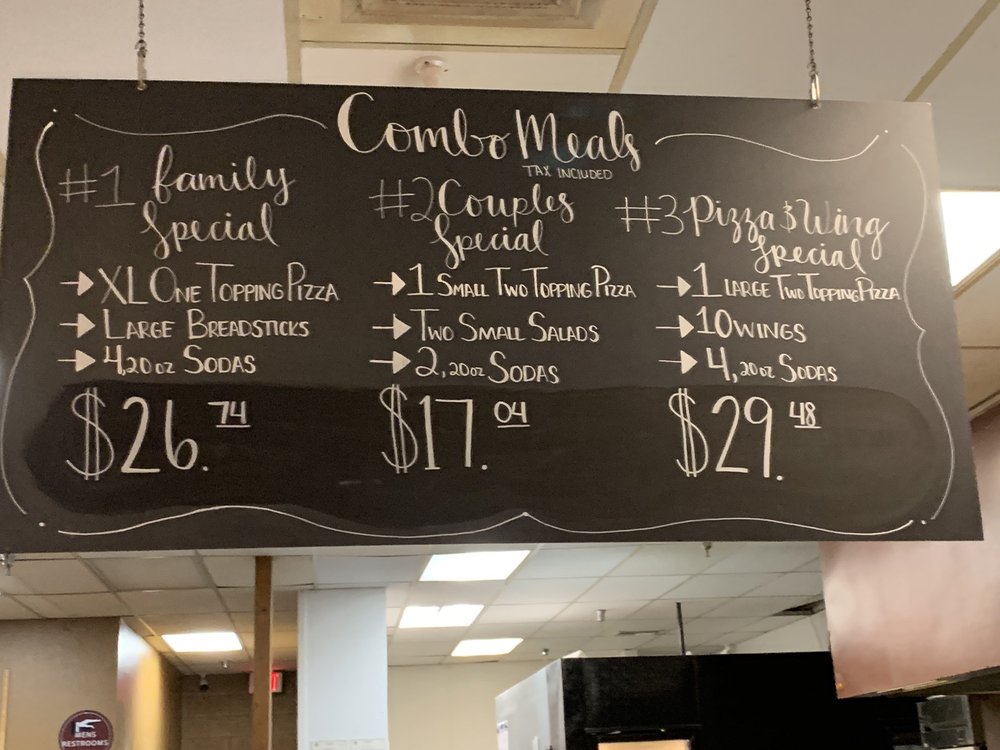 Combo Meals
TAX INCLUDED
#1 family
Special
→ XL ONE TOPPING PIZZA
→ LARGE BREADSTICKS
→ 4, 20 oz SODAS
$26.74
#2 Couples
Special
→ 1 SMALL TWO TOPPING PIZZA
→ TWO SMALL SALADS
→ 2, 20oz SODAS
$17.04
#3 Pizza & Wing
Special
→ 1 LARGE TWO TOPPING PIZZA
→ 10 WINGS
→ 4, 20oz SODAS
$29.48
MENS
RESTROOMS